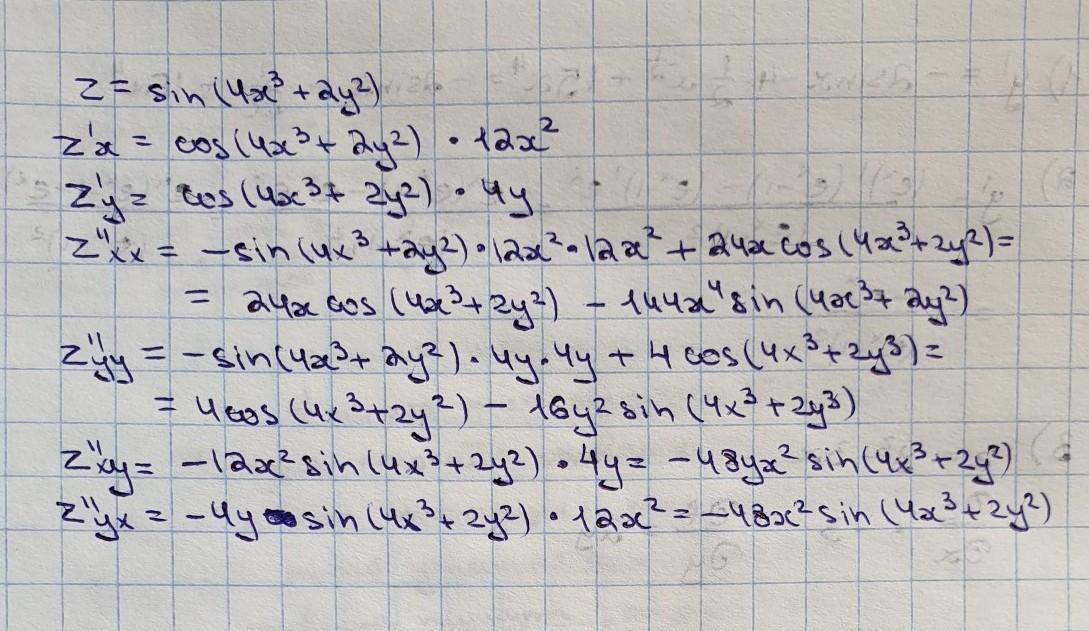 z = sin(4x³ + 2y²)
z'x = cos(4x³ + 2y²) · 12x²
z'y = cos(4x³ + 2y²) · 4y
z''xx = -sin(4x³ + 2y²) · 12x² · 12x² + 24x cos(4x³ + 2y²) =
= 24x cos(4x³ + 2y²) - 144x⁴ sin(4x³ + 2y²)
z''yy = -sin(4x³ + 2y²) · 4y · 4y + 4 cos(4x³ + 2y³) =
= 4cos(4x³ + 2y²) - 16y² sin(4x³ + 2y³)
z''xy = -12x² sin(4x³ + 2y²) · 4y = -48yx² sin(4x³ + 2y²)
z''yx = -4y sin(4x³ + 2y²) · 12x² = -48x² sin(4x³ + 2y²)